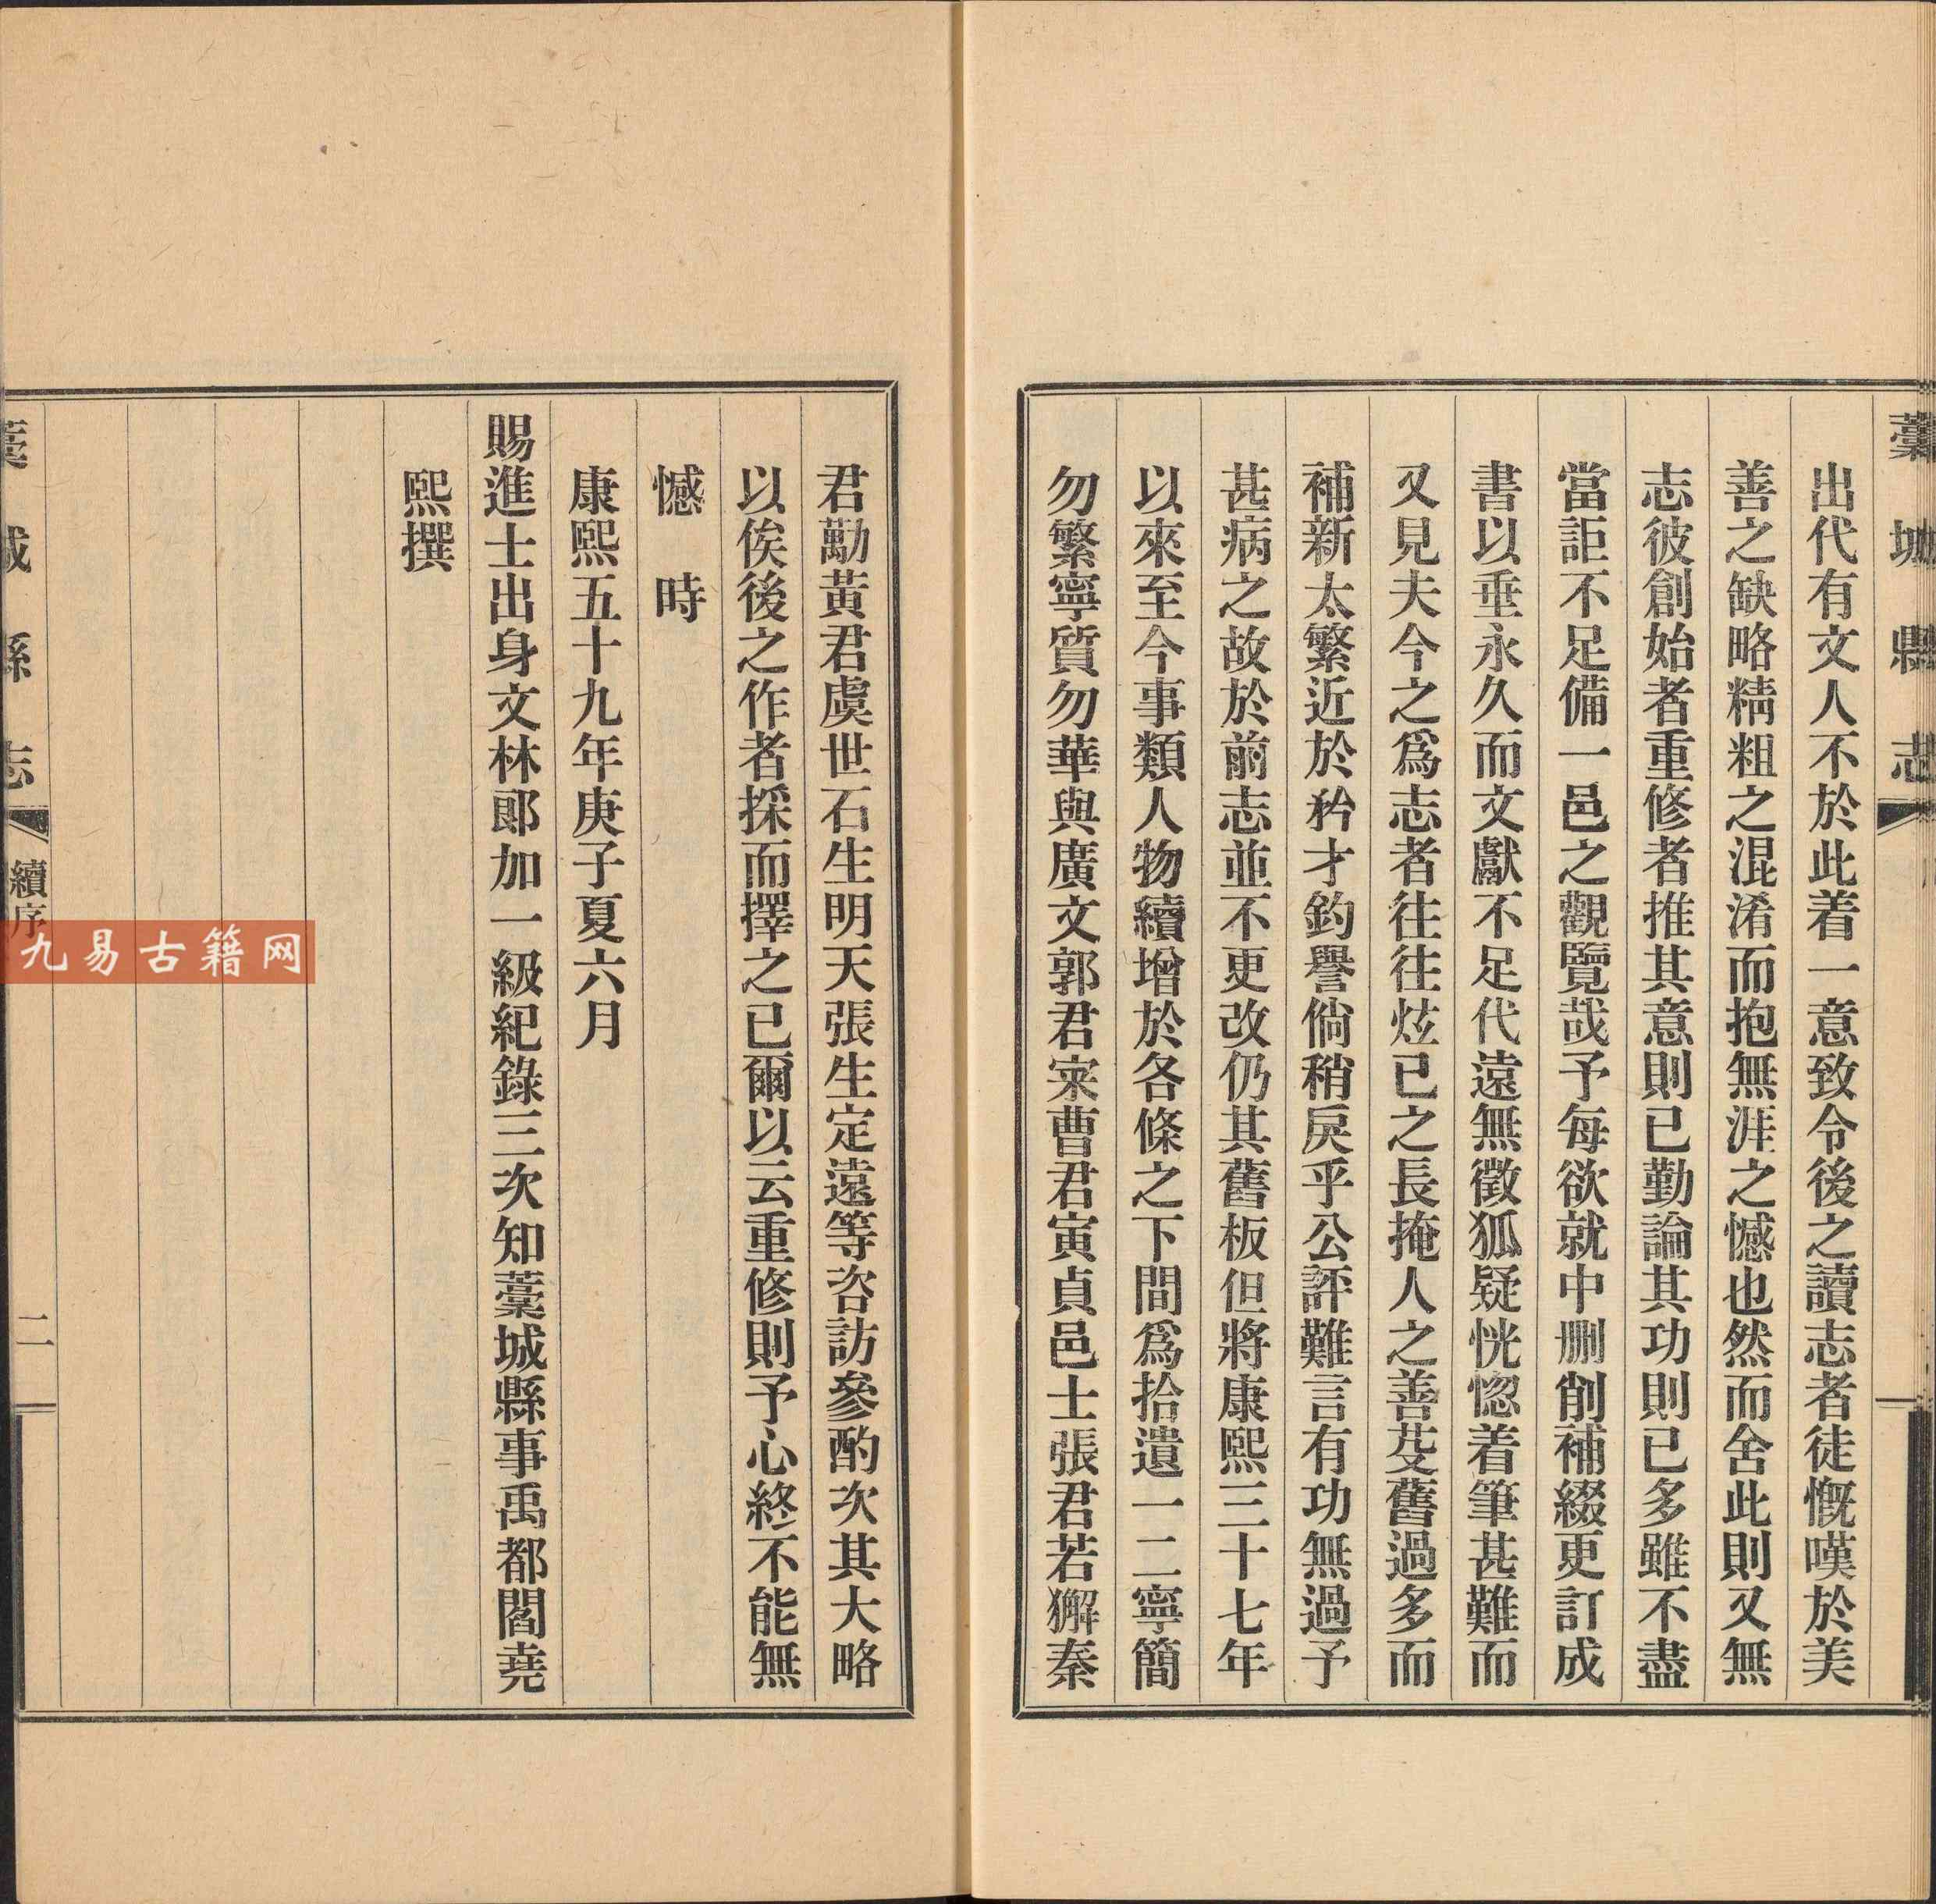 藳城縣志
出代有文人不於此着一意致令後之讀志者徒慨嘆於美
善之缺略精粗之混淆而抱無涯之憾也然而舍此則又無
志彼創始者重修者推其意則已勤論其功則已多雖不盡
當詎不足備一邑之觀覽哉予每欲就中刪削補綴更訂成
書以垂永久而文獻不足代遠無徵狐疑恍惚着筆甚難而
又見夫今之爲志者往往炫已之長掩人之善芟舊過多而
補新太繁近於矜才釣譽倘稍戾乎公評難言有功無過予
甚病之故於前志並不更改仍其舊板但將康熙三十七年
以來至今事類人物續增於各條之下間爲拾遺一二寧簡
勿繁寧質勿華與廣文郭君寀曹君寅貞邑士張君若獬秦
君勷黃君虞世石生明天張生定遠等咨訪參酌次其大略
以俟後之作者採而擇之已爾以云重修則予心終不能無
憾時
康熙五十九年庚子夏六月
賜進士出身文林郎加一級紀錄三次知藁城縣事禹都閻堯
熙撰
藁城縣志
續序
二
九易古籍网